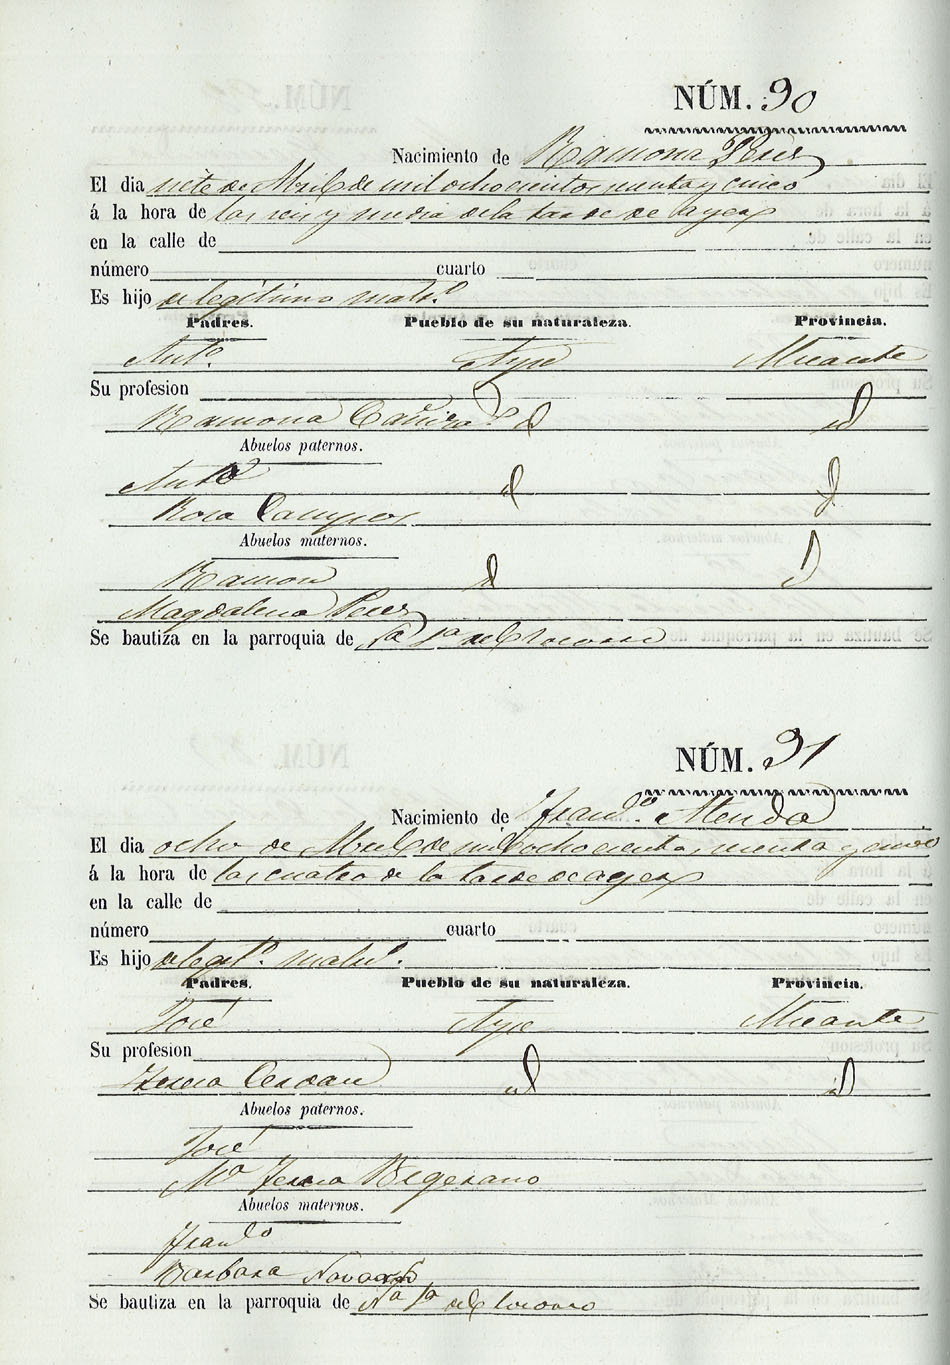 NÚM. 90
Nacimiento de Ramona Peres
El dia siete de Abril de mil ochocientos sesenta y cinco
á la hora de las seis y media de la tarde de ayer
en la calle de
número cuarto
Es hijo de legitimo matr.º
Padres. Pueblo de su naturaleza. Provincia.
Antº. Aspe Alicante
Su profesion
Ramona Cañizas id id
Abuelos paternos.
Antº id id
Rosa Campos
Abuelos maternos.
Ramon id id
Magdalena Peres
Se bautiza en la parroquia de Nª Sª del Socorro
NÚM. 91
Nacimiento de Franco. Alenda
El dia ocho de Abril de mil ochocientos sesenta y cinco
á la hora de las cuatro de la tarde de ayer
en la calle de
número cuarto
Es hijo de legº. matr.
Padres. Pueblo de su naturaleza. Provincia.
José Aspe Alicante
Su profesion
Teresa Cerdan id id
Abuelos paternos.
José
Mª Teresa Begerano
Abuelos maternos.
Franco
Barbara Navarro
Se bautiza en la parroquia de Nª Sª del Socorro